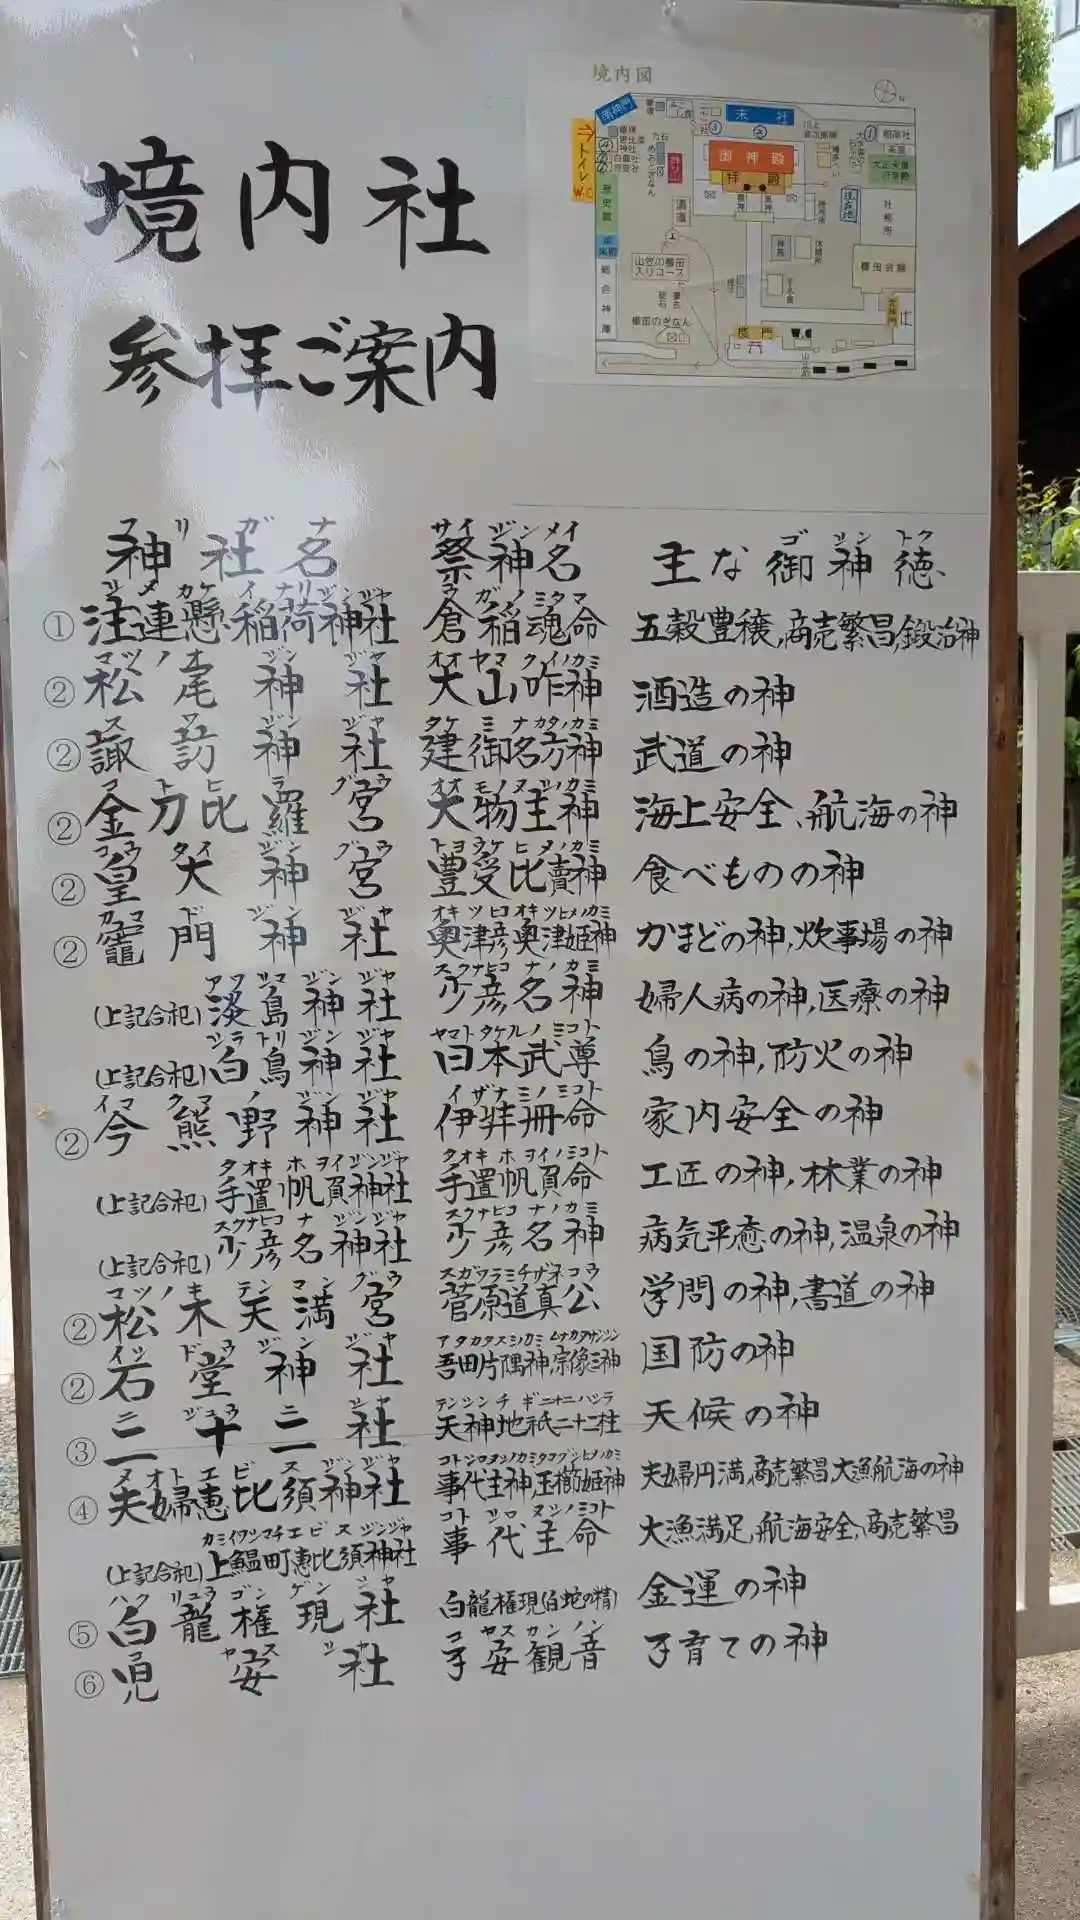 境内図
末社
御神殿
拝殿
トイレ
W.C
社務所
櫛田会館
山笠の櫛田
入りコース
櫛田のぎなん
総合神庫
楼門
W.C
境内社
参拝ご案内
神社名 祭神名 主な御神徳
サイジンメイ ゴシントク
① 注連懸稲荷神社 倉稲魂命 五穀豊穣,商売繁昌,鍛冶神
② 松尾神社 大山咋神 酒造の神
② 諏訪神社 建御名方神 武道の神
② 金刀比羅宮 大物主神 海上安全、航海の神
② 皇大神宮 豊受比賣神 食べものの神
② 竈門神社 奥津彦奥津姫神 かまどの神,炊事場の神
(上記合祀) 淡島神社 少彦名神 婦人病の神,医療の神
(上記合祀) 白鳥神社 日本武尊 鳥の神,防火の神
② 今熊野神社 伊弉冊命 家内安全の神
(上記合祀) 手置帆負神社 手置帆負命 工匠の神,林業の神
(上記合祀) 少彦名神社 少彦名神 病気平癒の神,温泉の神
② 松木天満宮 菅原道真公 学問の神,書道の神
② 石堂神社 吾田片隅神,宗像三神 国防の神
③ 二十二社 天神地祇二十二柱 天候の神
④ 夫婦恵比須神社 事代主神,玉櫛姫神 夫婦円満,商売繁昌大漁航海の神
(上記合祀) 上鰮町恵比須神社 事代主命 大漁満足,航海安全,商売繁昌
⑤ 白龍権現社 白龍権現(白蛇の精) 金運の神
⑥ 児安社 子安観音 子育ての神